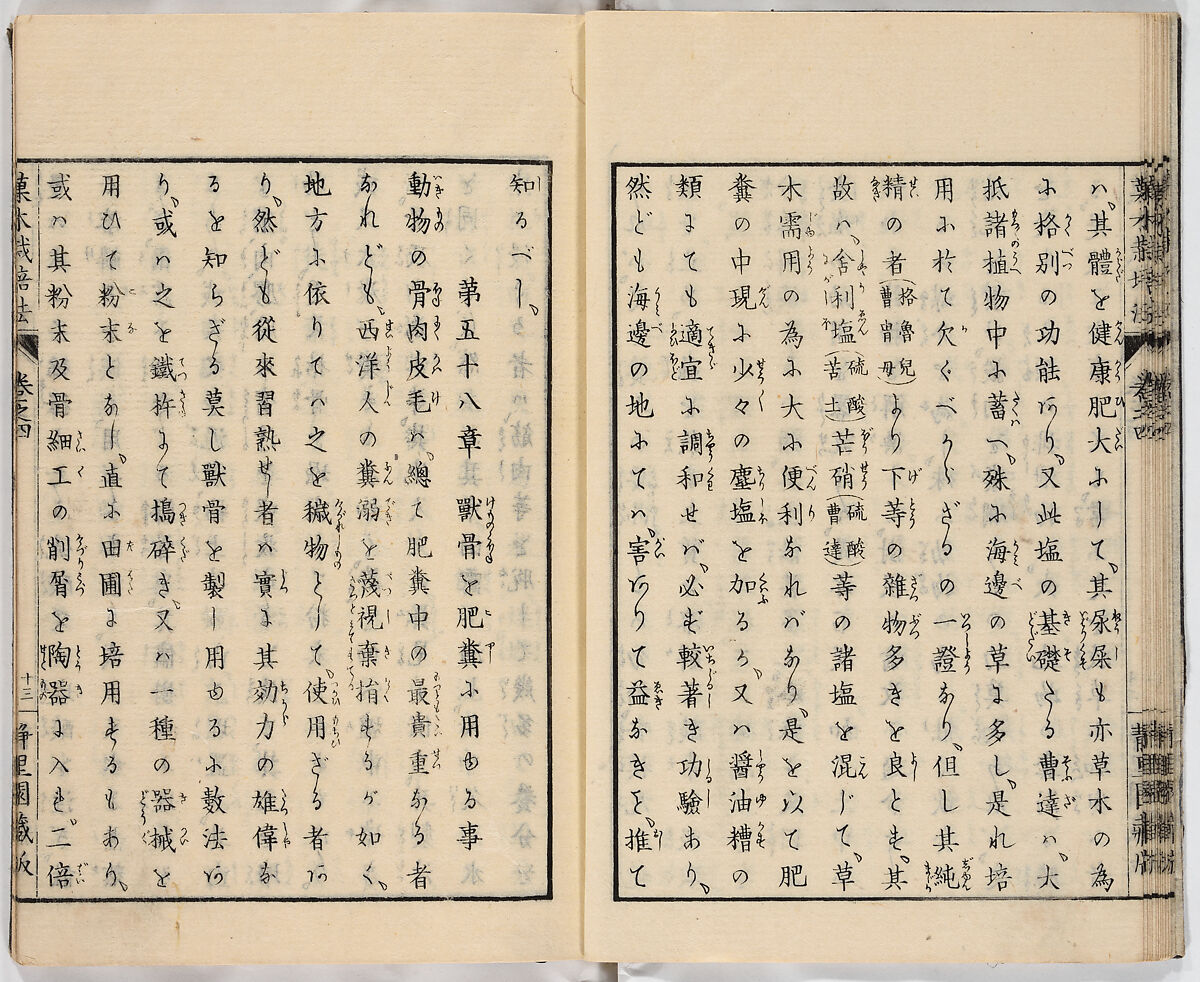 ハ、其體を健康肥大にして、其尿屎も亦草木の為
に格別の功能あり、又此塩の基礎たる曹達ハ、大
抵諸植物中に蓄へ、殊に海邊の草に多し、是れ培
用に於て欠くべからざるの一證なり、但し其純
精の者(格魯兒曹冑母)より下等の雜物多きを良とす、其
故ハ、舍利塩(硫酸苦土)芒硝(硫酸曹達)等の諸塩を混じて、草
木需用の為に大に便利なれバなり、是を以て肥
糞の中現に少々の塵塩を加るか、又ハ醤油糟の
類にても適宜に調和せバ、必ず較著き功驗あり、
然ども海邊の地にてハ、害ありて益なきを、推て
知るべし、
第五十八章 獸骨を肥糞に用ゆる事
動物の骨肉皮毛ハ、總て肥糞中の最貴重なる者
なれども、西洋人の糞溺を蔑視棄捐するが如く、
地方に依りてハ之を穢物として、使用ざる者あ
り、然ども從來習熟せし者ハ實に其効力の雄偉な
るを知らざる莫し獸骨を製し用ゆるに數法あ
り、或ハ之を鐵杵にて搗碎き、又ハ一種の器械を
用ひて粉末となし、直に田圃に培用するもあり、
或ハ其粉末及骨細工の削屑を陶器に入れ、二倍
菓木栽培法 卷之四 十三 静里園藏版